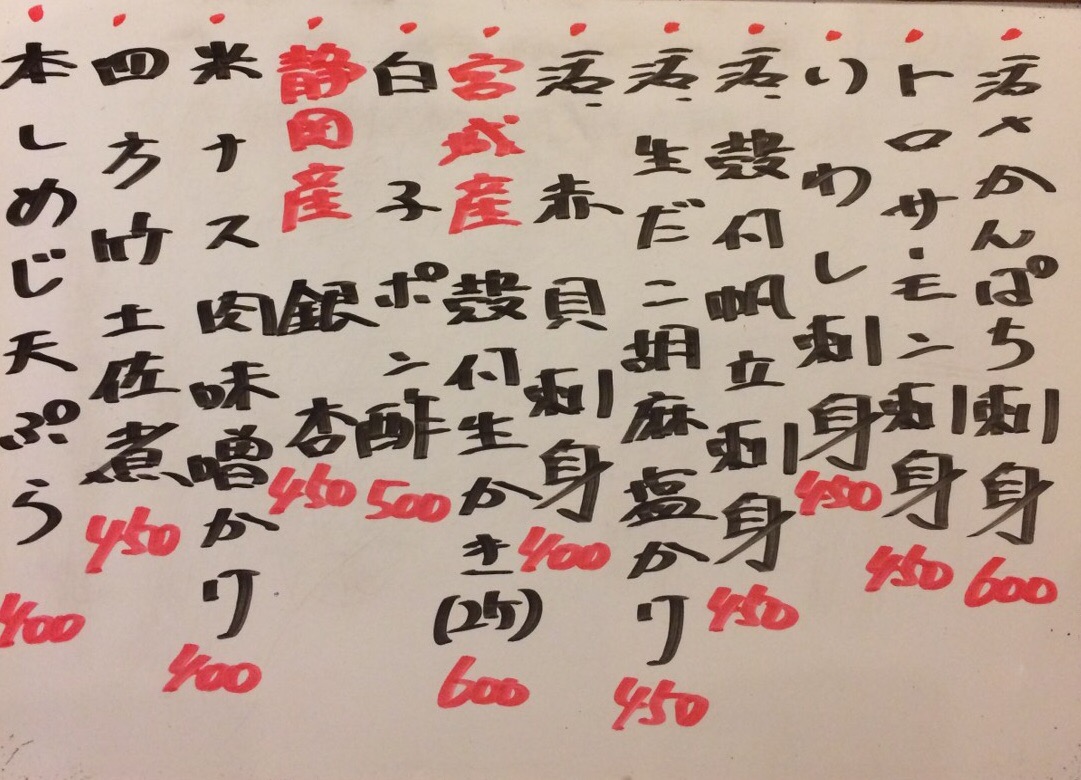 活〆かんぱち刺身 600
トロサーモン刺身 450
いわし刺身 450
活殻付帆立刺身 450
活生だこ胡麻塩かけ 450
活赤貝刺身 400
宮城産殻付生かき(2ケ) 600
白子ポン酢 500
静岡産銀杏 450
米ナス肉味噌かけ 400
四方竹土佐煮 450
本しめじ天ぷら 400